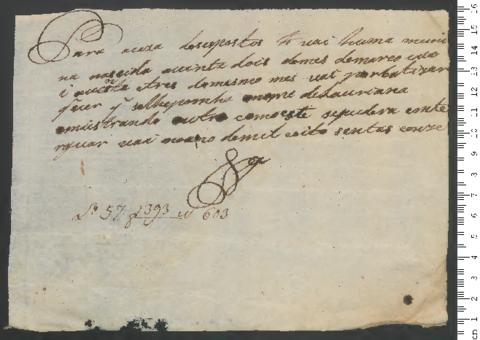 Para a caza dos espostos te vai huma meni
na nascida a vinte dois do mes de março
e vinte e tres do mesmo mes vai por batizar
quer q se lhe ponha o nome de Laureana
emistrando outro como este se pudera emte
rguar vai no ano de mil e oito sentos e onze
Lº 57 f 393 nº 603